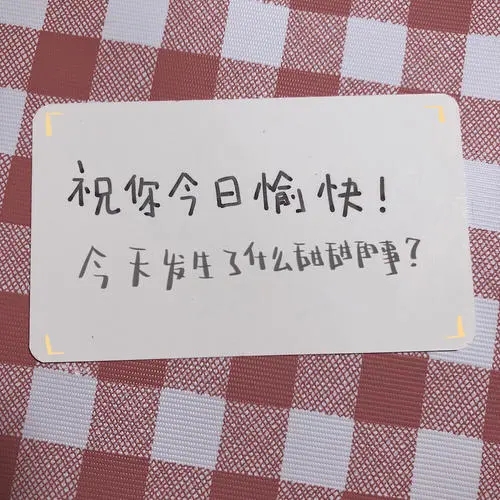 祝你今日愉快！
今天发生了什么甜甜的事？